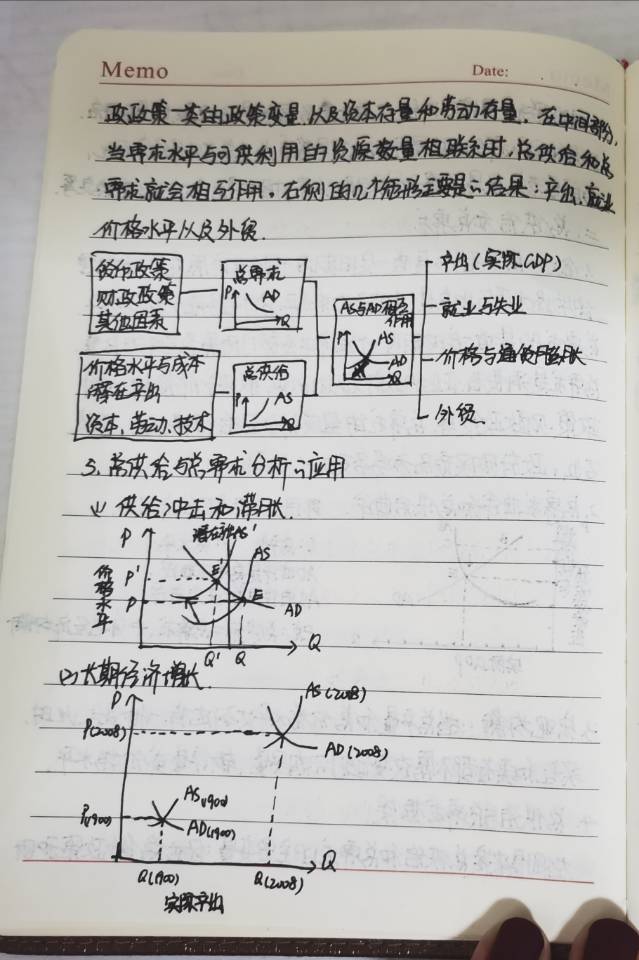 Memo
Date:
政政策一类的政策变量以及资本存量和劳动存量。在中间部分,
当需求水平与可供利用的资源数量相联系时,总供给和总
需求就会相互作用。右侧的几个矩形主要是结果:产出、就业
价格水平以及外贸.
货币政策
财政政策
其他因素
总需求
P
AD
Q
价格水平与成本
潜在产出
资本,劳动,技术
总供给
P
AS
Q
AS与AD相互
作用
P
AS
AD
Q
产出(实际GDP)
就业与失业
价格与通货膨胀
外贸.
3.总供给与总需求分析的应用
(1)供给冲击和滞胀.
P
潜在产出
AS'
AS
价格水平
P'
E'
P
E
AD
Q'
Q
Q
(2)长期经济增长.
P
AS(2008)
P(2008)
AD(2008)
AS(1900)
P(1900)
AD(1900)
Q
Q(1900)
Q(2008)
实际产出